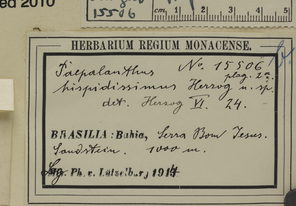 ed 2010
15506
cm 1 2
HERBARIUM REGIUM MONACENSE.
Paepalanthus No. 15506!
plag. 2a.
hispidissimus Herzog n. sp.
det. Herzog VI. 24.
BRASILIA: Bahia, Serra Bom Jesus.
Sandstein. 1000 m.
Leg. Ph. v. Lützelburg 1914